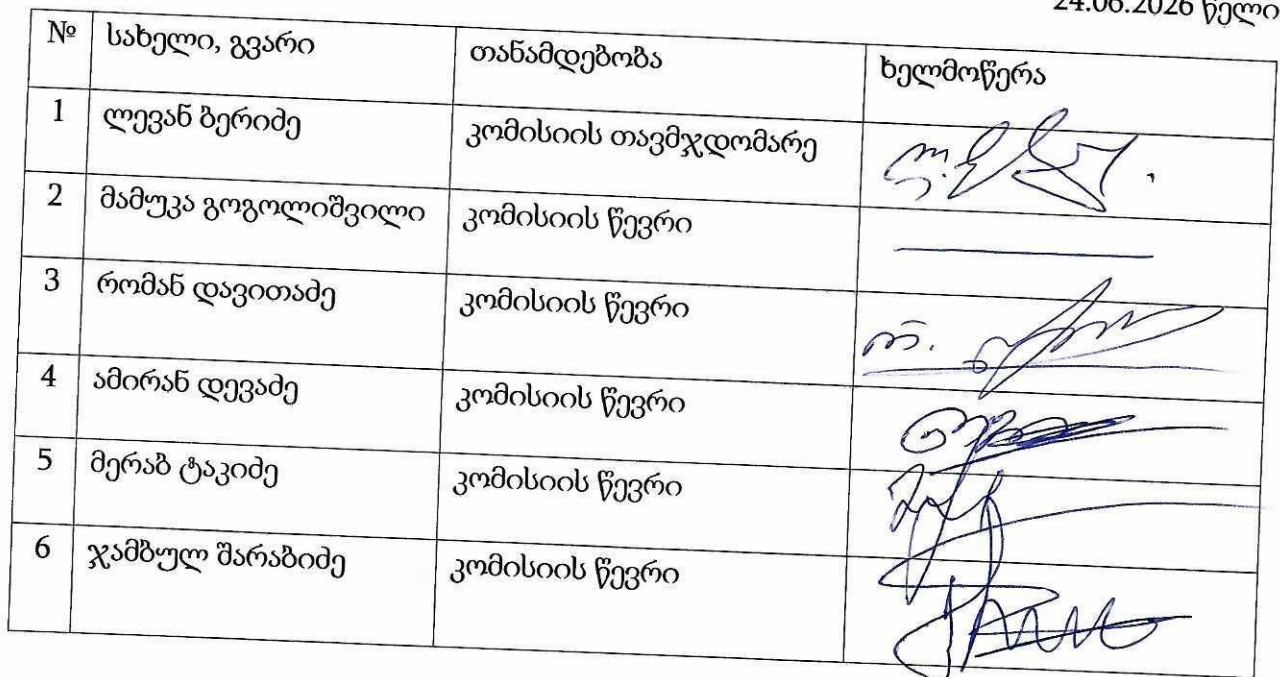 24.06.2026 წელი
№ სახელი, გვარი თანამდებობა ხელმოწერა
1 ლევან ბერიძე კომისიის თავმჯდომარე
2 მამუკა გოგოლიშვილი კომისიის წევრი
3 რომან დავითაძე კომისიის წევრი
4 ამირან დევაძე კომისიის წევრი
5 მერაბ ტაკიძე კომისიის წევრი
6 ჯამბულ შარაბიძე კომისიის წევრი